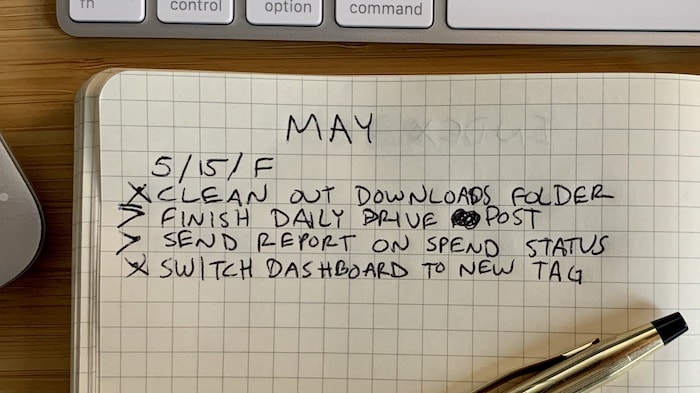 fn control option command
MAY
5/15/F
X CLEAN OUT DOWNLOADS FOLDER
> FINISH DAILY DRIVE POST
> SEND REPORT ON SPEND STATUS
X SWITCH DASHBOARD TO NEW TAG